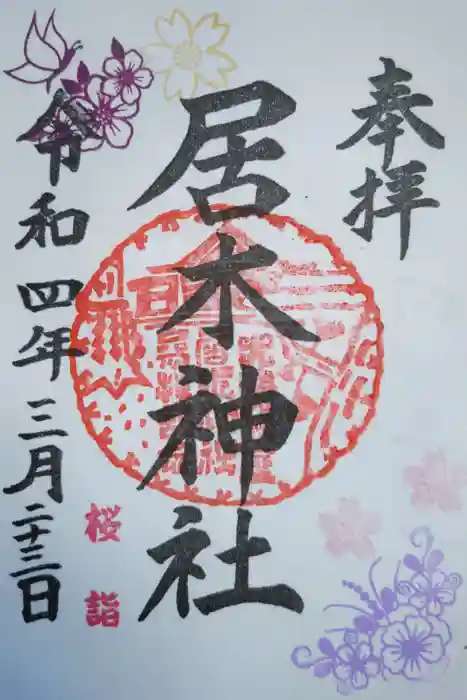 奉拝
居木神社
令和四年三月二十三日
桜詣